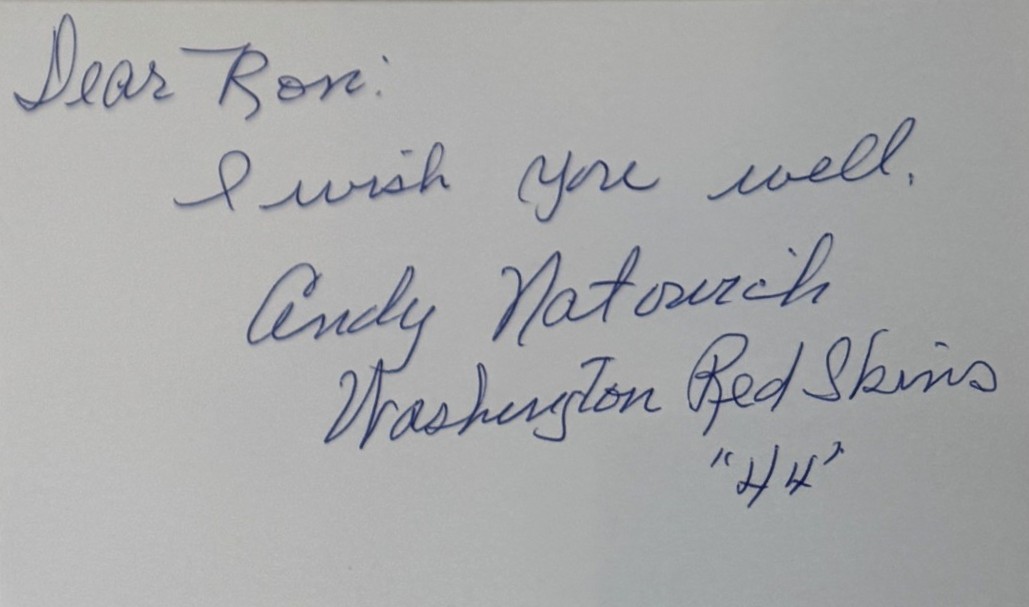 Dear Ron:
I wish you well.
Andy Natowich
Washington RedSkins
"44"